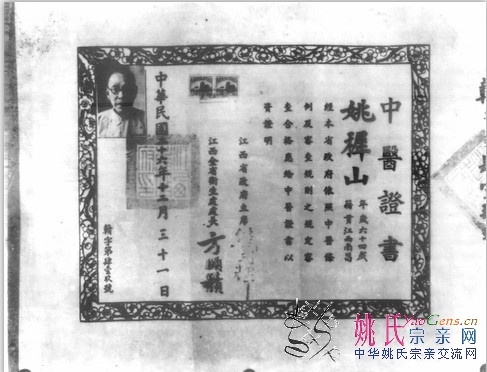 中醫證書
姚稺山 年歲六十四歲
籍貫江西南昌
經本省政府依照中醫條
例及審查規則之規定審
查合格應給中醫證書以
資證明
江西省政府主席
江西全省衛生處處長 方頤積
中華民國三十六年十二月三十一日
贛字第肆壹玖號
姚氏宗亲网
YaoGens.cn
中华姚氏宗亲交流网